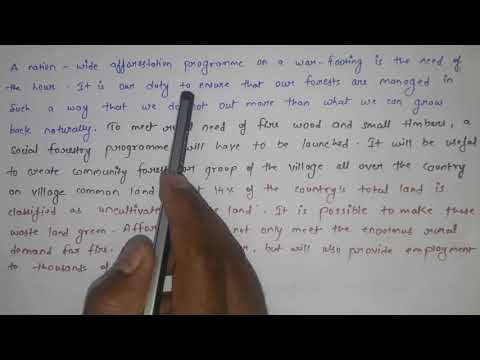 A nation - wide afforestation programme on a war-footing is the need of
the hour. It is our duty to ensure that our forests are managed in
such a way that we do not out more than what we can grow
back naturally. To meet need of fire wood and small timbers, a
social forestry programme will have to be launched. It will be useful
to create community group of the village all over the country
on village common land 14% of the country's total land is
classified as land'. It is possible to make these
waste land green. not only meet the enormous rural
demand for fire. but will also provide employment
to thousands